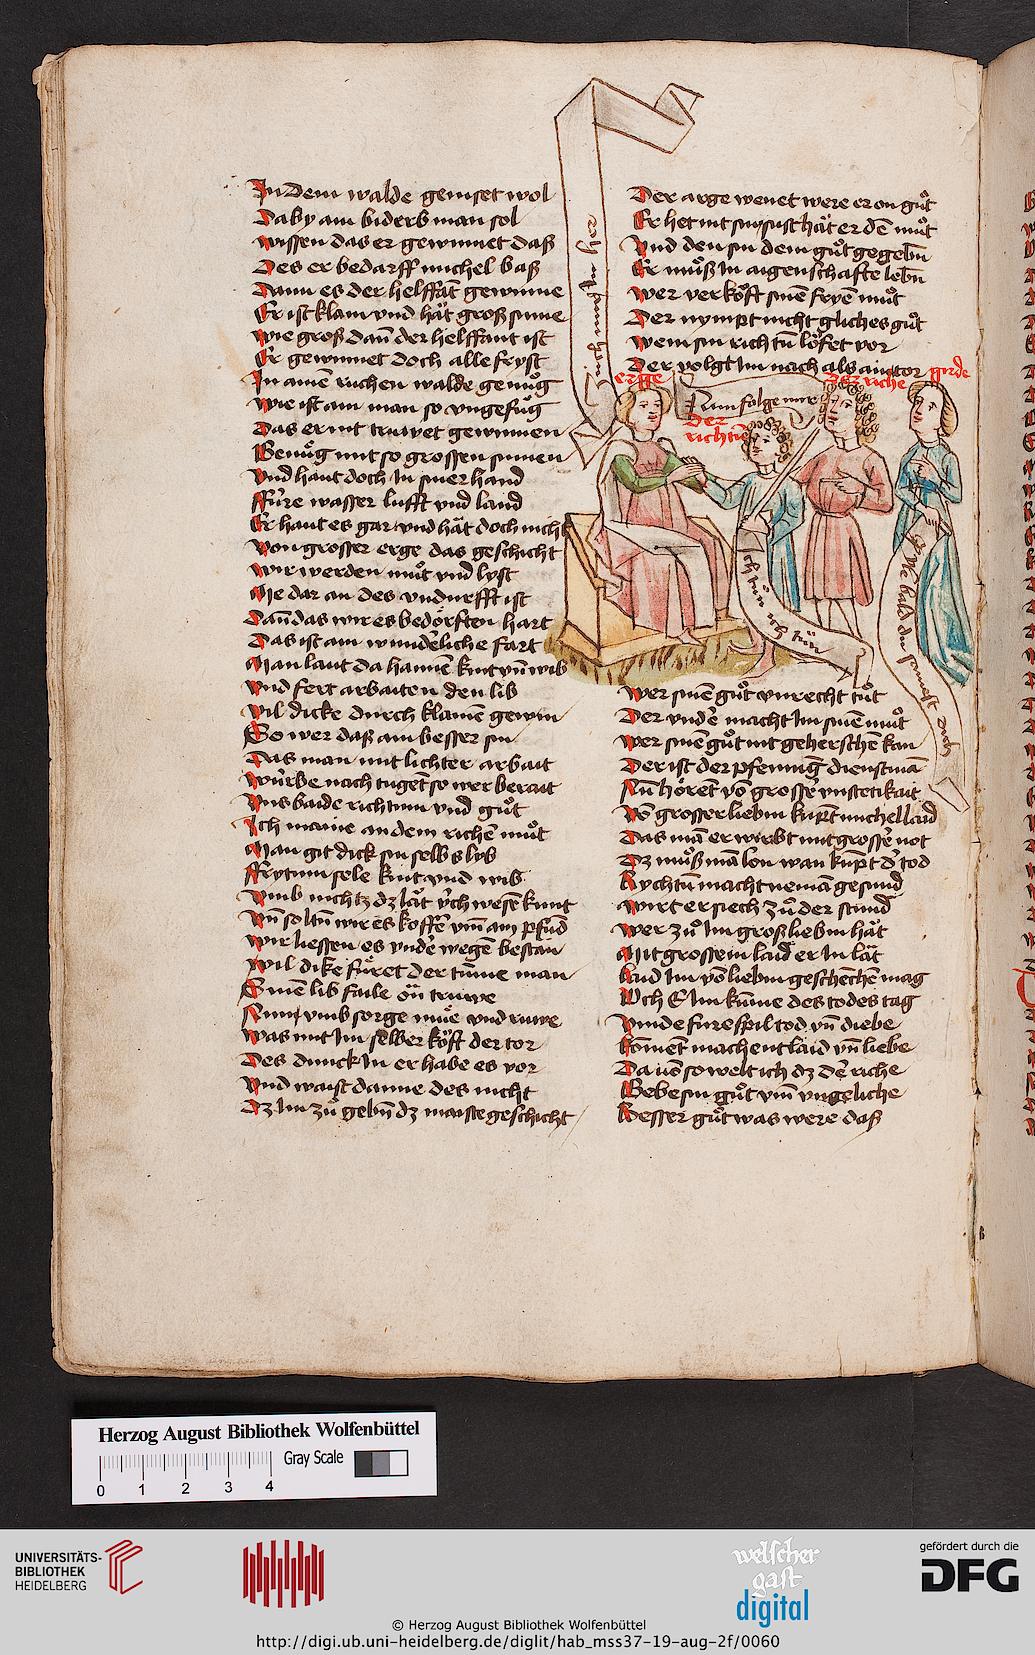 In dem walde geniset wol
Da by ain biderb man sol
wissen das er gewinnet daß
Des er bedarff michel baß
Dann es der helffāt gewinne
Er ist klain vnd hät groß sinne
wie groß dan̄ der helffant ist
Er gewinnet doch alle fryst
In ainē ruchen walde genuͦg
wie ist ain man so vngefuͦg
Das er nit truwet gewinnen
Genuͦg mit so grossen sinnen
vnd haut doch In siner hand
FFüre wasser lufft vnd land
Er haut es gar vnd hät doch nicht
von grosser erge das geschicht
wir werden muͦt vnd lyst
Me dar an des vndurfft ist
dan̄ das wir es bedörften hart
Das ist ain wunderliche fart
Man laut da haimē kint vn̄ wib
vnd fert arbaiten den lib
vil dicke durch klainē gewin
So wer daß ain besser sin
Das man mit lichter arbait
würbe nach tugēt so wer berait
vns baide richtum vnd guͦt
Ich maine an dem richē muͦt
Man git dick sin selbs lyb
Frytum sele kint vnd wib
vmb nichtz dz lät
wir liessen es vnder wegē bestan
vil dike füret der tume man
Sinen lib faile on truwe
Nimt vmb sorge mue vnd ruwe
was mit Im selber köft der tor
Des dunck In er habe es vor
vnd waist danne des nicht
Dz Im zuͦ gebn̄ dz maiste geschicht
Der arge wenet were er on guͦt
Er het nit sin sust hät er dē muͦt
vnd den sin dem guͦt gegebn̄
Er muͦß In aigenschafte lebn̄
wer verköft sinē fryē muͦt
Der nympt nicht gliches guͦt
wem sin richtū löfet vor
Der volgt Im nach als ain tor
erge
Der
richtū
Der riche
girde
Nun folge mire
wer sinē guͦt vnrecht tuͦt
Der vnder macht Im sinē muͦt
wer sinē guͦt nit geherschē kan
Der ist der pfennīg dienstmā
Nu hörent vō grosser vnstetikait
vō grosser liebin kūpt michel laid
Das mā erwirbt mit grosser not
Dz muͦß mā lōn wan kūpt dʼ tod
Rychtū macht niemā gesund
wirt er siech zuͦ der stund
wer zuͦ Im groß liebin hät
Mit grossem laid er In lät
Laid Im vō liebin geschechē mag
Och E Im kume des todes tag
vinde fur spil tod vn̄ diebe
koment machent laid vn̄ liebe
welt ich dz dē riche
Gebe sin guͦt vm̄ vngeliche
Besser guͦt was were daß
Herzog August Bibliothek Wolfenbüttel
Gray Scale
0 1 2 3 4
UNIVERSITÄTS-
BIBLIOTHEK
HEIDELBERG
welscher
gast
digital
gefördert durch die
DFG
© Herzog August Bibliothek Wolfenbüttel
http://digi.ub.uni-heidelberg.de/diglit/hab_mss37-19-aug-2f/0060